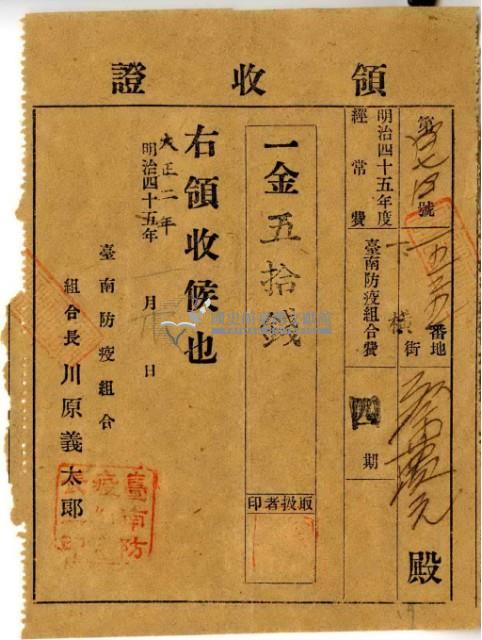 領收證
第 號
番地
下橫街
殿
明治四十五年度
經常費
臺南防疫組合費
四期
一金五拾錢
取扱者印
右領收候也
大正二年
明治四十五年 月 日
臺南防疫組合
組合長川原義太郎